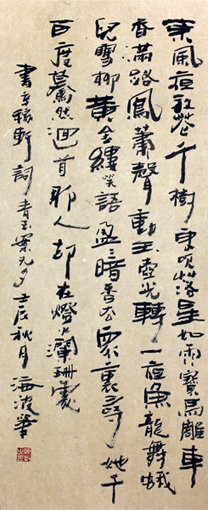 東風夜放花千樹更吹落星如雨寶馬雕車
香滿路鳳簫聲動玉壺光轉一夜魚龍舞蛾
兒雪柳黃金縷笑語盈暗香去眾裏尋她千
百度驀然迴首那人却在燈火瀾珊處
書辛稼軒詞青玉案元夕壬辰秋月海波筆